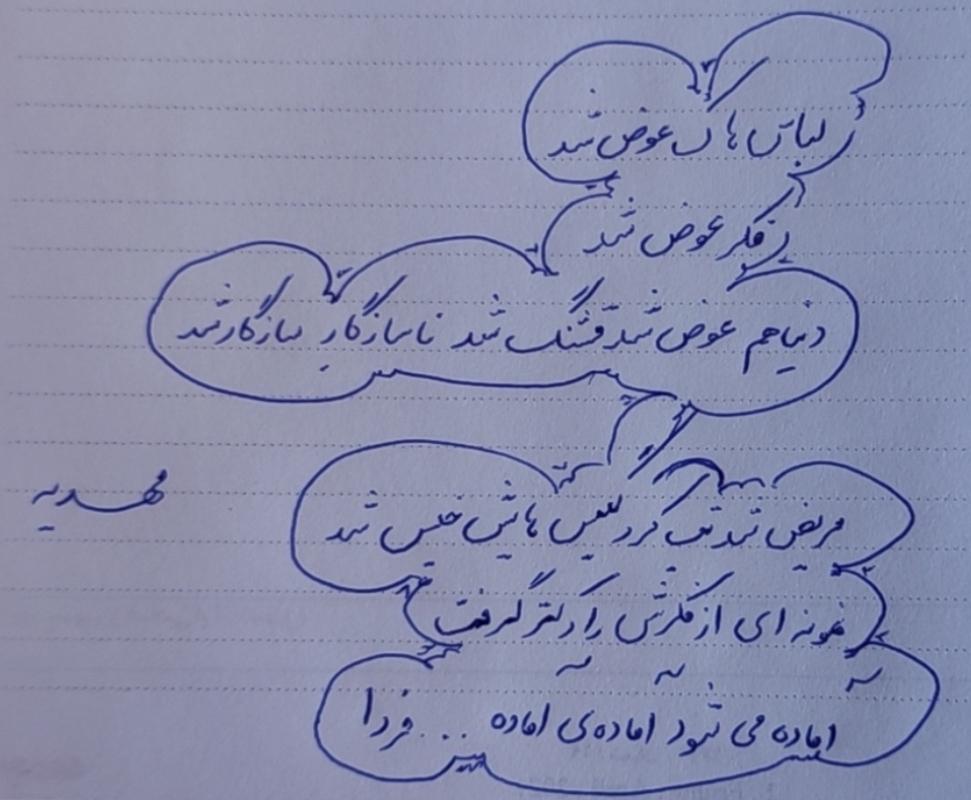 لباس هاش عوض شد
فکر عوض شد
دنیا هم عوض شد قشنگ شد ناسازگار سازگار شد
مریض شد تب کرد لباس هایش خیس شد
نمونه ای از فکرش را دکتر گرفت
آماده می شود آماده ی آماده ... فردا
مهدیه